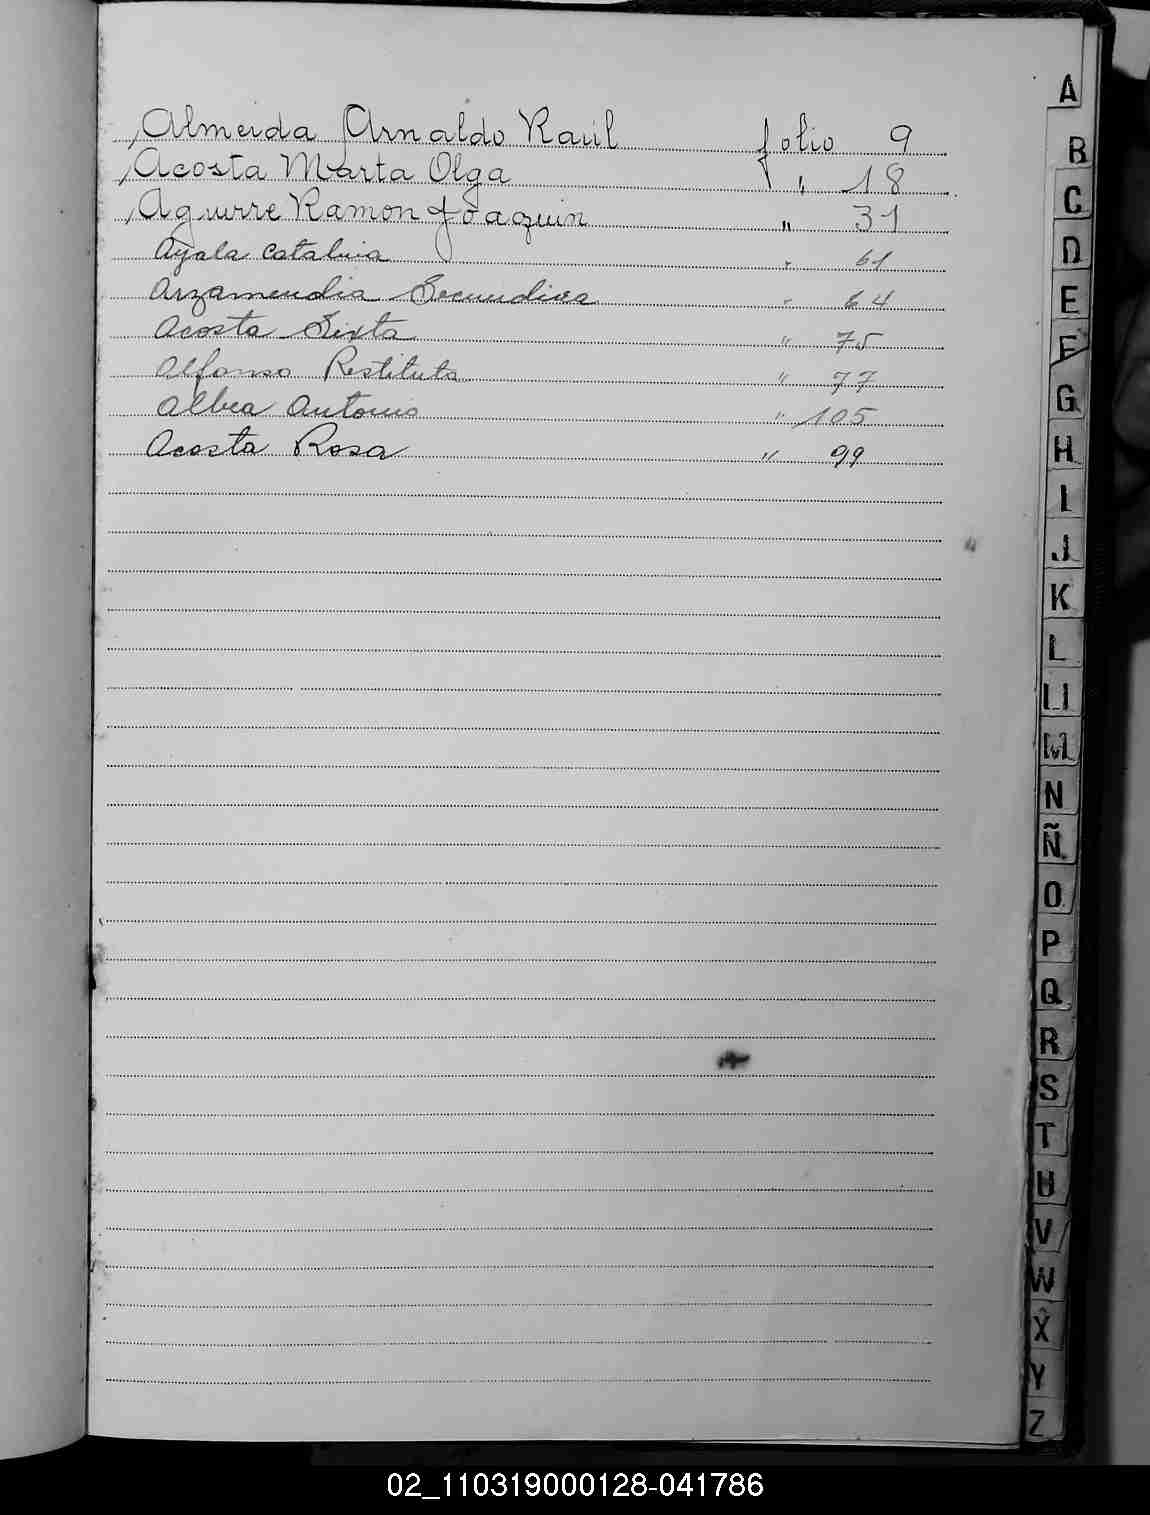 Almeida Arnaldo Raúl folio 9
Acosta Marta Olga " 18
Aguirre Ramon Joaquin " 31
Ayala Catalina " 61
Arzamendia Secundina " 64
Acosta Sixta " 75
Alfonso Restituta " 77
Albea Antonio " 105
Acosta Rosa " 99
A
B
C
D
E
F
G
H
I
J
K
L
Ll
M
N
Ñ
O
P
Q
R
S
T
U
V
W
X
Y
Z
02_110319000128-041786